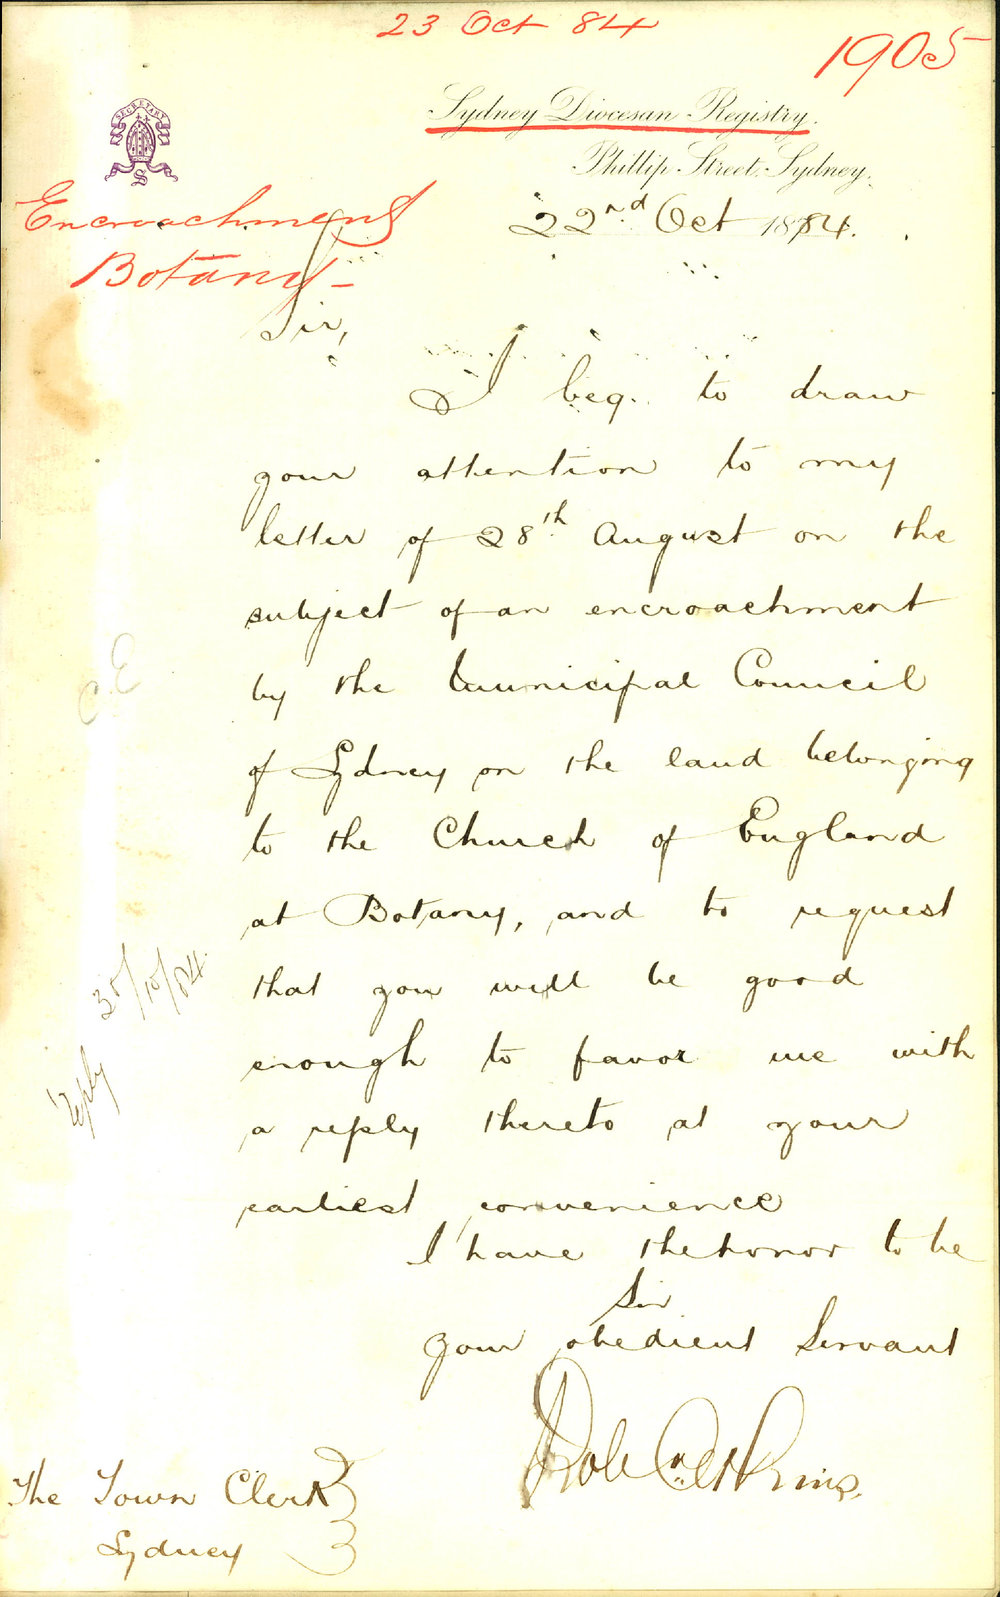 23 Oct 84
1905
SECRETARY
Sydney Diocesan Registry.
Phillip Street, Sydney,
Encroachment
Botany -
22nd Oct 1884.
Sir,
I beg to draw
your attention to my
letter of 28th August on the
subject of an encroachment
by the Municipal Council
of Sydney on the land belonging
to the Church of England
at Botany, and to request
that you will be good
enough to favor me with
a reply thereto at your
earliest convenience
I have the honor to be
Sir
your obedient Servant
Robt Atkins.
The Town Clerk
Sydney
C.E
reply 30/10/84.